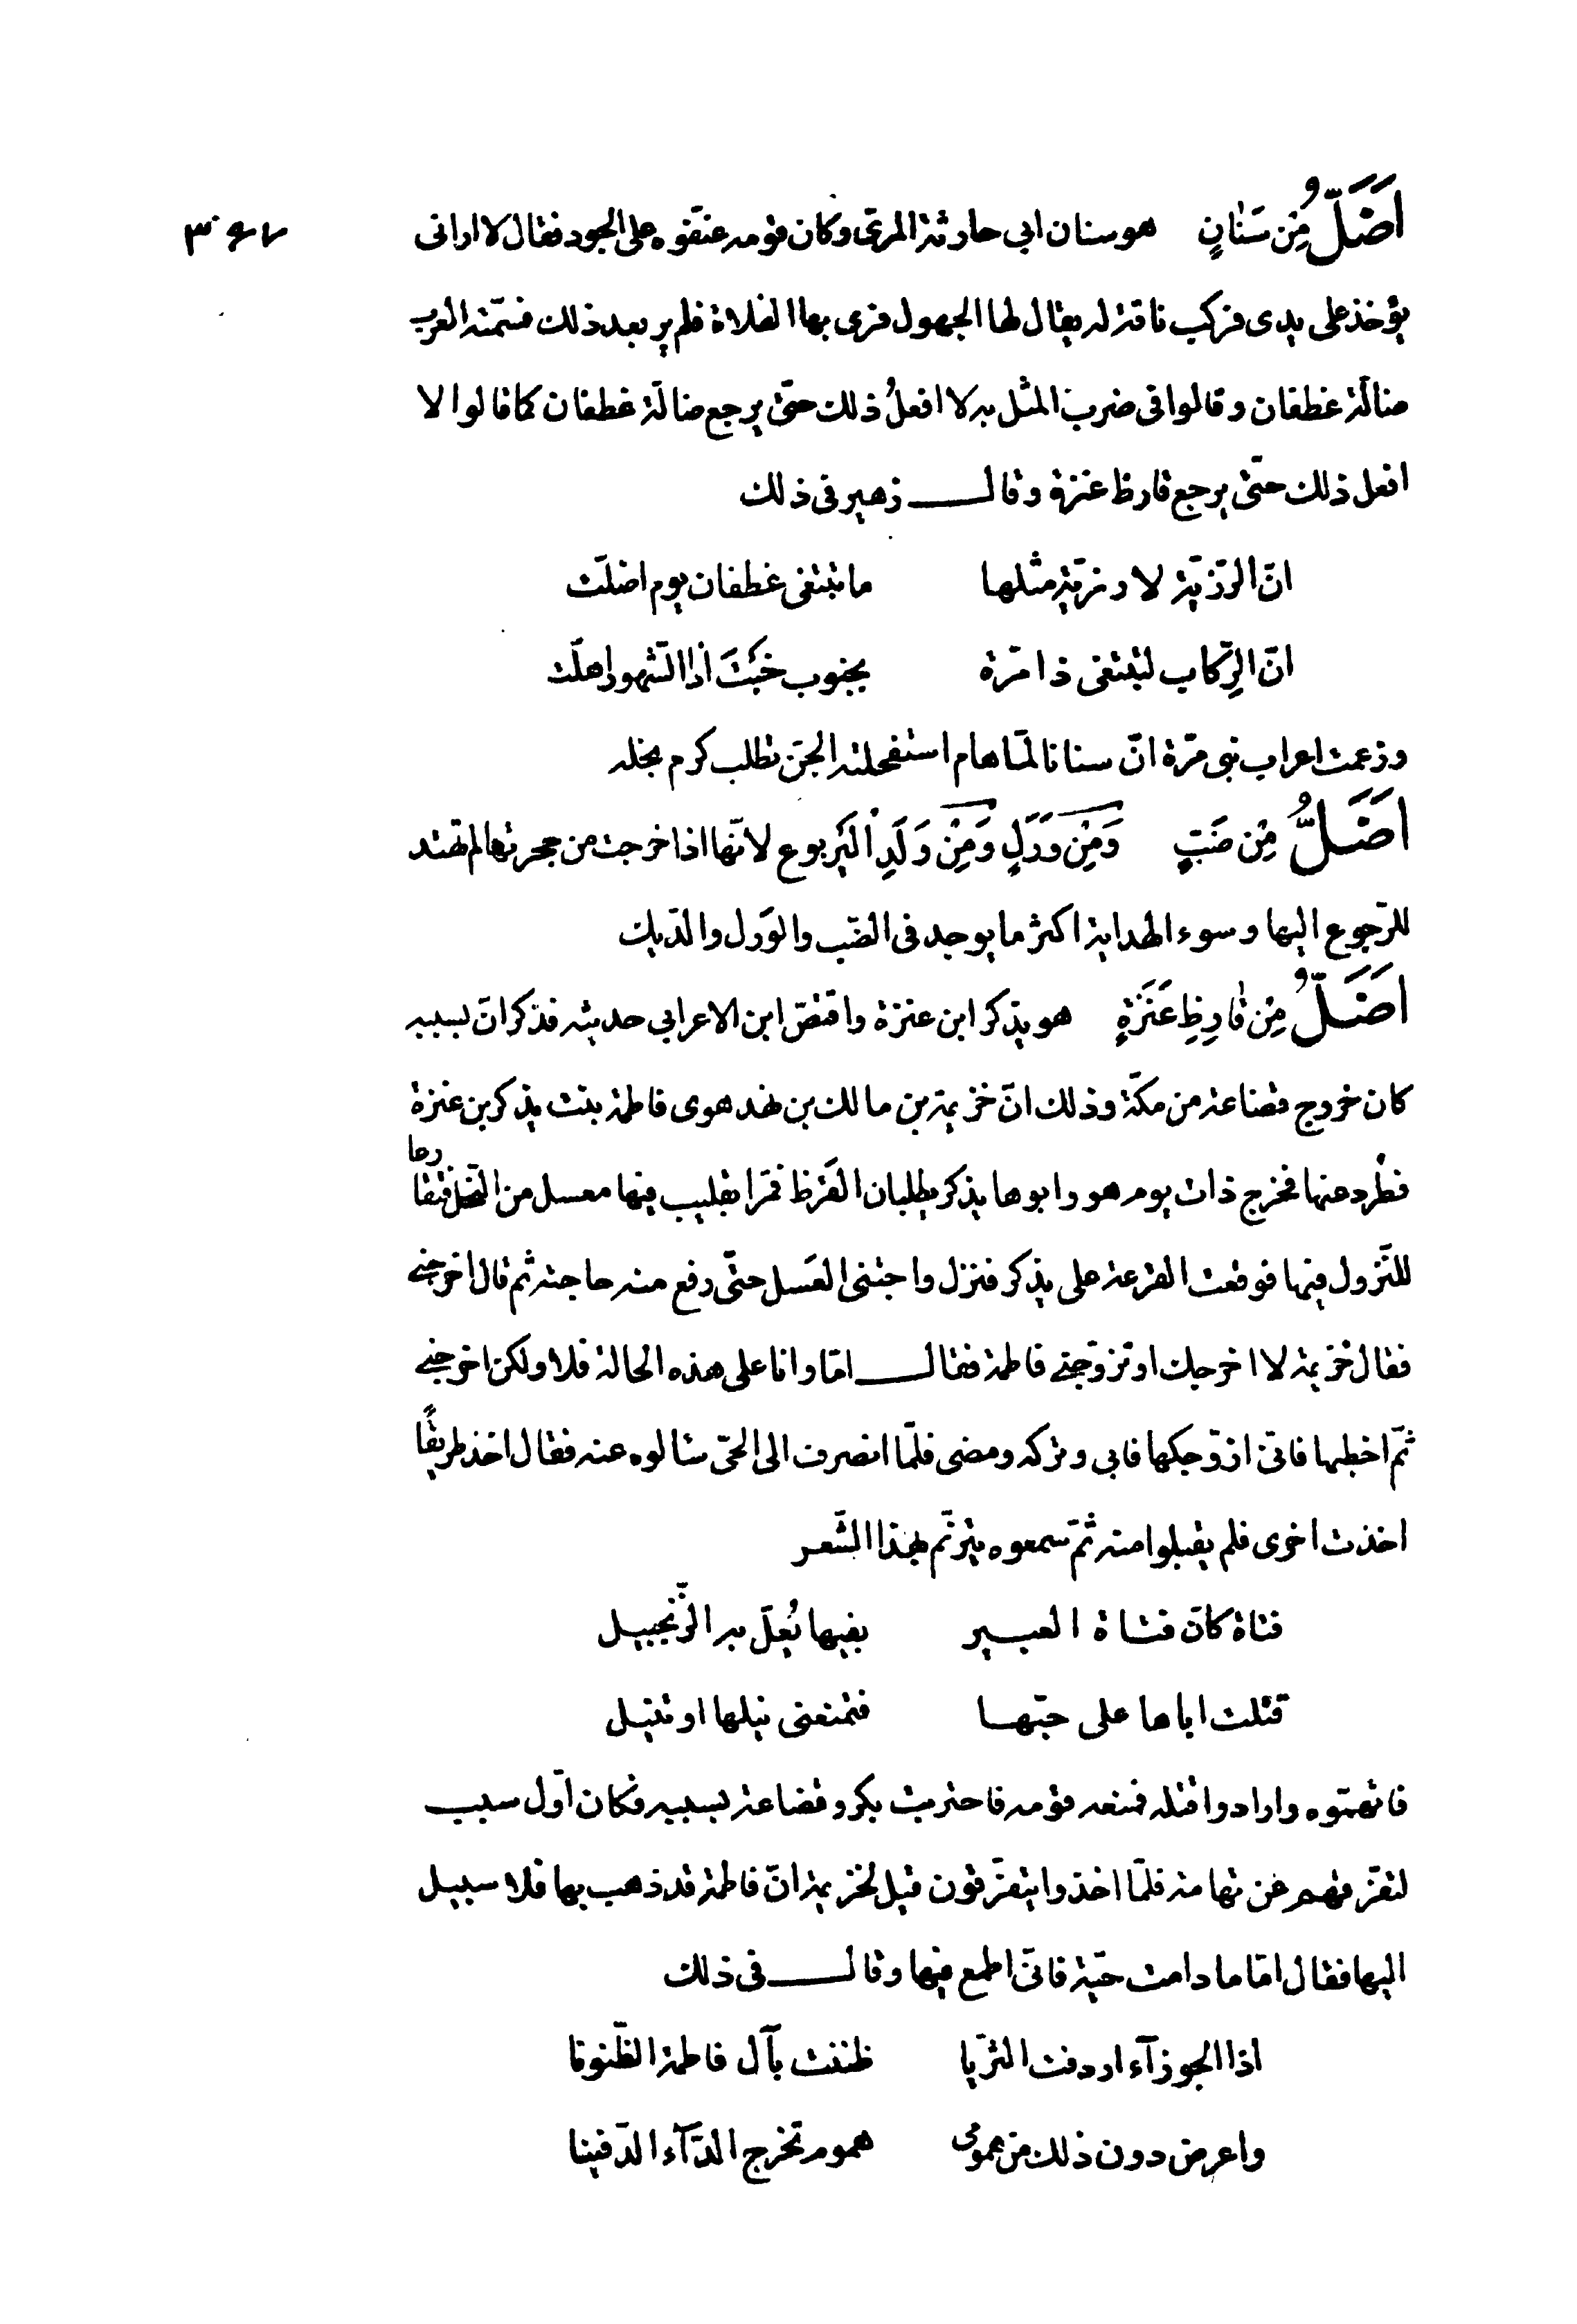 اَضَلُّ مِنْ سَنَانٍ هو سنان ابى حارثة المرىّ وكان قومه عنّفوه على الجود فقال لا ارانى
يؤخذ على يدى فركب ناقة له يقال لها الجهول فرمى بها الفلاة فلم ير بعد ذلك فسمّته العرب
ضالّة غطفان وقالوا فى ضرب المثل به لا افعلُ ذلك حتّى يرجع ضالّة غطفان كما قالوا لا
افعل ذلك حتّى يرجع قارظ عنزة وقال زهير فى ذلك
انّ الرّزيّة لا رزيّة مثلها ما تبتغى غطفان يوم اضلّت
انّ الرِّكاب لتبتغى ذا مرّة بجنوب خَبْتَ اذا الشّهور اهلّت
وزعمت اعراب بنى مرّة انّ سنانا لمّا هام استفحلته الجنّ تطلب كرم نجله
اَضَلُّ مِنْ ضَبٍّ وَمِنْ وَرَلٍ وَمِنْ وَلَدِ اْليَربوع لانّها اذا خرجت من جحرتها لم تهتد
للرّجوع اليها وسوء الهداية اكثر ما يوجد فى الضّب والوَرل والدّيك
اَضَلُّ مِنْ قٰارِظِ عَنَزَةٍ هو يذكر ابن عنزة واقتصّ ابن الاعرابى حديثه فذكر انّ بسببه
كان خروج قضاعة من مكّة وذلك انّ خزيمة بن مالك بن نهد هوى فاطمة بنت يذكر بن عنزة
فطُرد عنها فخرج ذات يوم هو وابوها يذكر يطلبان القَرَظ فمّرا بقليب فيها معسل من النّحل فتقارعا
للنّزول فيها فوقعت القرعة على يذكر فنزل واجتنى العَسل حتّى رفع منه حاجته ثم قال اخرجنى
فقال خزيمة لا اخرجك او تزوّجنى فاطمة فقال امّا وانا على هذه الحالة فلا ولكن اخرجنى
ثمّ اخطبها فانّى ازوّجكها فابى وتركه ومضى فلمّا انصرف الى الحىّ سالوه عنه فقال اخذ طريقًا
اخذت اخرى فلم يقبلوا منه ثمّ سمعوه يترنّم بهذا الشّعر
فتاة كانّ فتاة العبير بفيها يُعلّ به الزّنجبيل
قتلت اباها على حبّها فتمنعنى نيلها او تنيل
فاتهمّوه وارادوا قتله فمنعه قومه فاحتربت بكر وقضاعة بسببه فكان اوّل سبب
لتفرّقهم عن تهامة فلمّا اخذوا يتفرّقون قيل لخزيمة انّ فاطمة قد ذهب بها فلا سبيل
اليها فقال امّا ما دامت حيّة فانّى اطمع فيها وقال فى ذلك
اذا الجوزآء اردفت الثّريا ظننت بآل فاطمة الظّنونا
واعرض دون ذلك من همومى هموم تخرج الدّآء الدّفينا